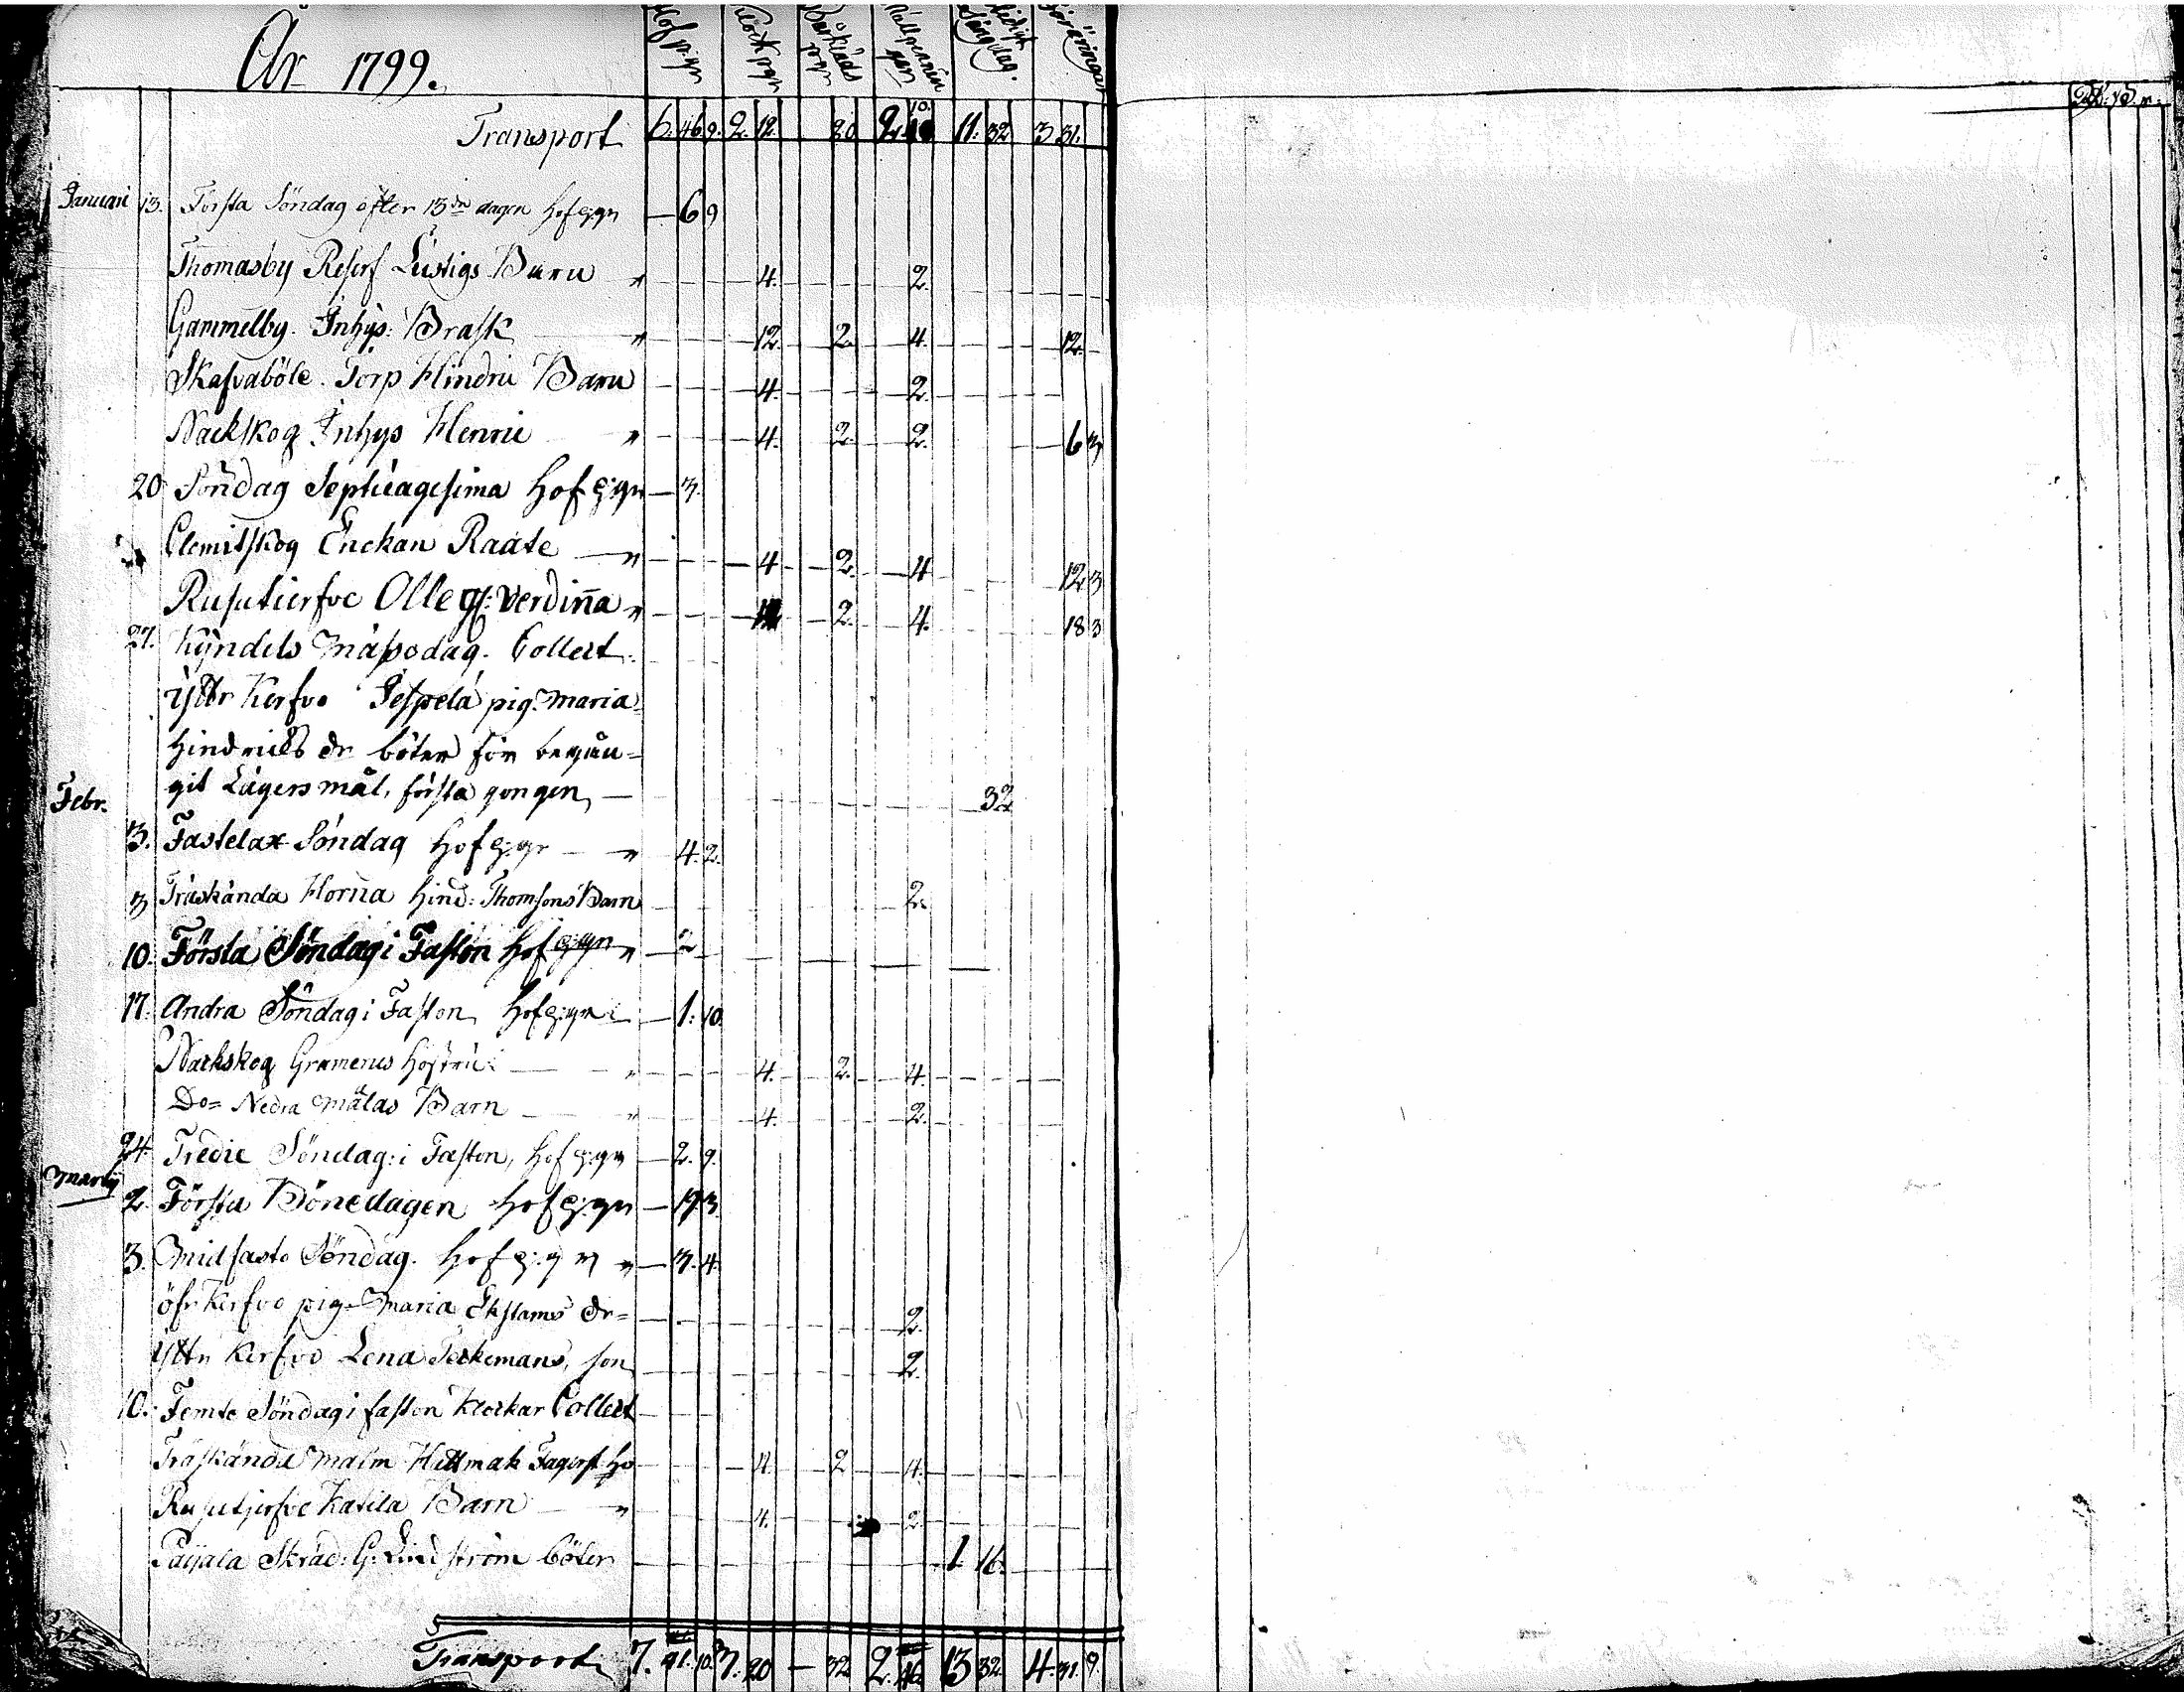 År 1799.
Hof p:gr Klock pgr Bårkläds pgr Pallpennin gar Ledigt Sångdag.
Transport 6. 46. 9. 2. 12. 20 2. 10. 11. 32 3. 31.
Januari 13. Första Söndag öfter 13de dagen Hof p:gr — 6 9
Thomasby Lustigs Barn " 4. 2.
Gammelby. Inhys: Brask " 12. 2. 4. 12.
Skafvaböle. Torp Hindric Barn 4. 2.
Nackskog Inhys Henric " 4. 2. 2. 6 3
20 Söndag Septuagesima Hof p:gr — 3.
Clemitskog Enckan Raate " 4 2. 4 12 3
Rusutierfvc Olle " 2. 4. 18 3
27. Kÿndels mässodag. Collect.
ÿttr Kerfvo Jespela pig. Maria
Hindricks dr böter för begån=
git Lägersmål, första gongen, — 32
Febr.
3. Fastelax Söndag Hof p:gr — " 4. 2.
3 Träskända Horna Hind: Thomsons Barn 2.
10. Första Söndag i Faston Hof p:gr " — 2
17. Andra Söndag i Faston Hof p:gr — 1. 10.
Nackskog Hostru " 4. 2. 4.
Do= Nedra Mätas Barn " 4. 2.
24. Tredie Söndag i Faston, Hof p:gr — 2. 9.
Martij
2. Första Bönedagen Hof p:gr — 19 3.
3. Midfasto Söndag. Hof p:gr " — 3. 4.
öfr Kerfvo pig. Maria Ekstams dr= 2.
ÿttr Kerfvo Lena son 2.
10. Femte Söndag i faston Klockar Collect
Träskända malm Hittmak 4. 2 4.
Rusutjerfvc Katila Barn " 4. 2.
Paijala Skräd: G: Lindström böter 1 16.
Transport 7. 41. 10. 3. 20 — 32 2. 46. 13 32. 4. 31. 9.